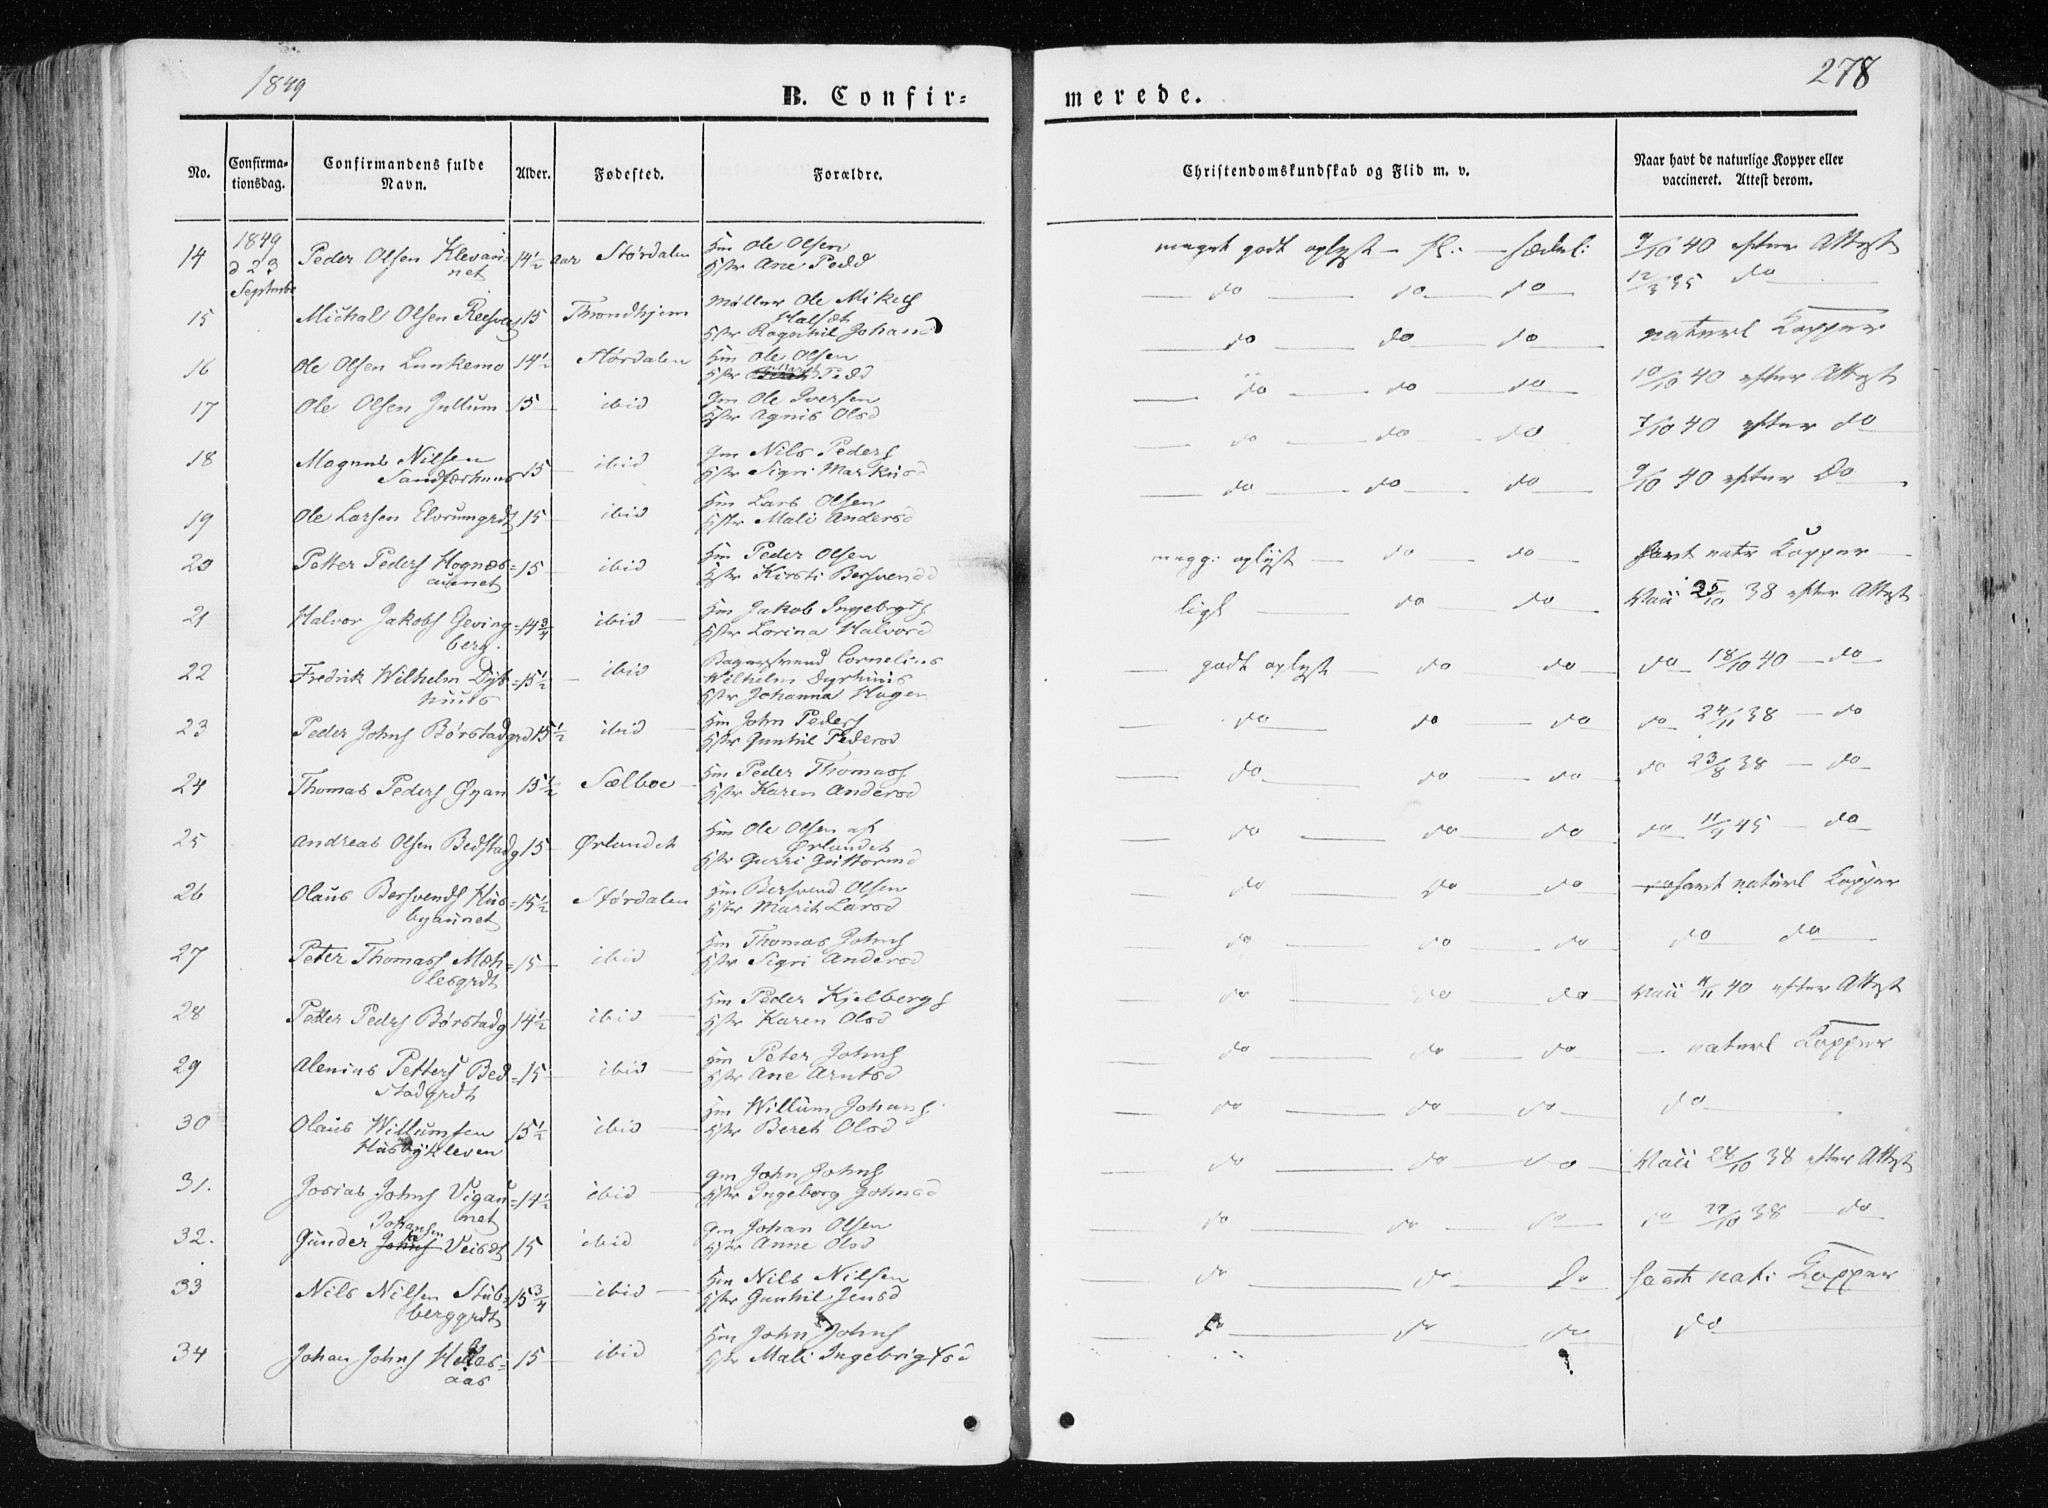 1849
278
B. Confir=
merede.
No.
Confirma-
tionsdag.
Confirmandens fulde
Navn.
Alder.
Fødested.
Forældre.
Christendomskundskab og Flid m. v.
Naar havt de naturlige Kopper eller
vaccineret. Attest derom.
14 1849 d 23 September Peder Olsen Klevau-
net 14½ aar Størdalen Hm Ole Olsen
Hstr Ane Pedd
meget godt oplyst — fl: — sædel: 9/10 40 efter Attest
15 Michal Olsen 15 Throndhjem Møller Ole Mikels
Halsæt
Hstr Ragnhil Johansd
do do do 12/3 35 do
16 Ole Olsen Lunkemo 14½ Størdalen Hm Ole Olsen
Hstr Pedd
do do do naturl Kopper
17 Ole Olsen Jullum 15 ibid Gm Ole Iversen
Hstr Agnis Olsd
do do do 10/10 40 efter Attest
18 Magnus Nilsen
Sandfærhuus 15 ibid Gm Nils Peders
Hstr Sigri Markusd
do do do 7/10 40 efter do
19 Ole Larsen Elvrumgrdt 15 ibid Hm Lars Olsen
Hstr Mali Andersd
do do do 9/10 40 efter Do
20 Petter Peders Hognæs=
aunet 15 ibid Hm Peder Olsen
Hstr Kirsti Bersvendd
megg: oplyst do do havt natr Kopper
21 Halvor Jakobs Geving=
berg. 14¾ ibid Hm Jakob Ingebrgts
Hstr Lorina Halvord
ligs do do Vacc 25/10 38 efter Attest
22 Fredrik Wilhelm Dyr
huus 15½ ibid Bagersvend Cornelius
Wilhelm Dyrhuus
Hstr Johanna Hagen
godt oplyst do do do 18/10 40 do
23 Peder Johns Børstadgrd 15½ ibid Hm John Peders
Hstr Gunhil Pedersd
do do do do 24/11 38 do
24 Thomas Peders Øyan 15½ Sælboe Hm Peder Thomass
Hstr Karen Andersd
do do do do 23/8 38 do
25 Andreas Olsen Bedstadg 15 Ørlandet Hm Ole Olsen af
Ørlandet
Hstr Gurri Guttormd
do do do do 11/9 45 do
26 Olaus Bersvends Hus=
byaunet 15½ Størdalen Hm Bersvend Olsen
Hstr Marit Larsd
do do do havt naturl Kopper
27 Peter Thomass Mæh=
lesgrdt 15 ibid Hm Thomas Johns
Hstr Sigri Andersd
do do do do do
28 Petter Peders Børstadg 14½ ibid Hm Peder Kjelbergs
Hstr Karen Olsd
do do do Vacc 11/11 40 efter Attest
29 Alenius Petters Bed=
stadgrdt 15 ibid Hm Peter Johns
Hstr Ane Arntsd
do do do naturl Kopper
30 Olaus Willumsen
Husbykleven 15½ ibid Hm Willum Johans
Hstr Beret Olsd
do do do do
31. Josias Johns Vigau=
net 14½ ibid Gm John Johns
Hstr Ingeborg Johnsd
do do do Vacc 28/10 38 efter Attest
32. Gunder Johansen Veisdt 15 ibid Gm Johan Olsen
Hstr Anne Olsd
do do do do 22/10 38 do
33 Nils Nilsen Stub=
berggrdt 15¾ ibid Hm Nils Nilsen
Hstr Gunhil Jensd
do do do havt nat: Kopper
34 Johan Johns
aas 15 ibid Hm John Johns
Hstr Mali Ingebrigtsd
do do do do